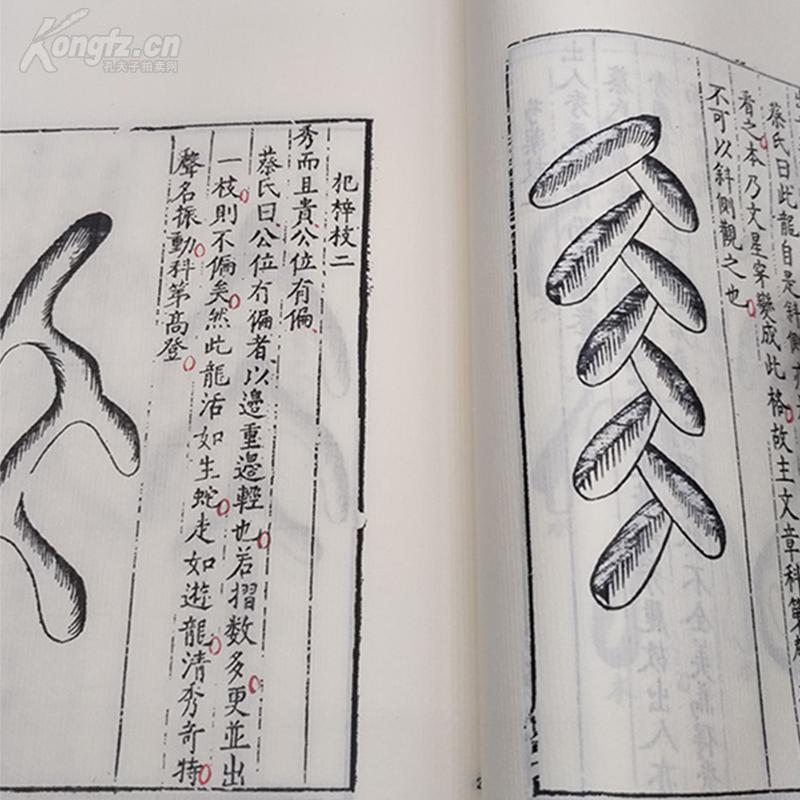 Kongfz.cn
孔夫子拍卖网
蔡氏曰此龍自是斜側
看之本乃文星穿變成此格故主文章科第
不可以斜側觀之也
杞梓枝二
秀而且貴公位有偏
蔡氏曰公位有偏者以邊重邊輕也若摺數多更並出
一枝則不偏矣然此龍活如生蛇走如遊龍清秀奇特
聲名振動科第高登